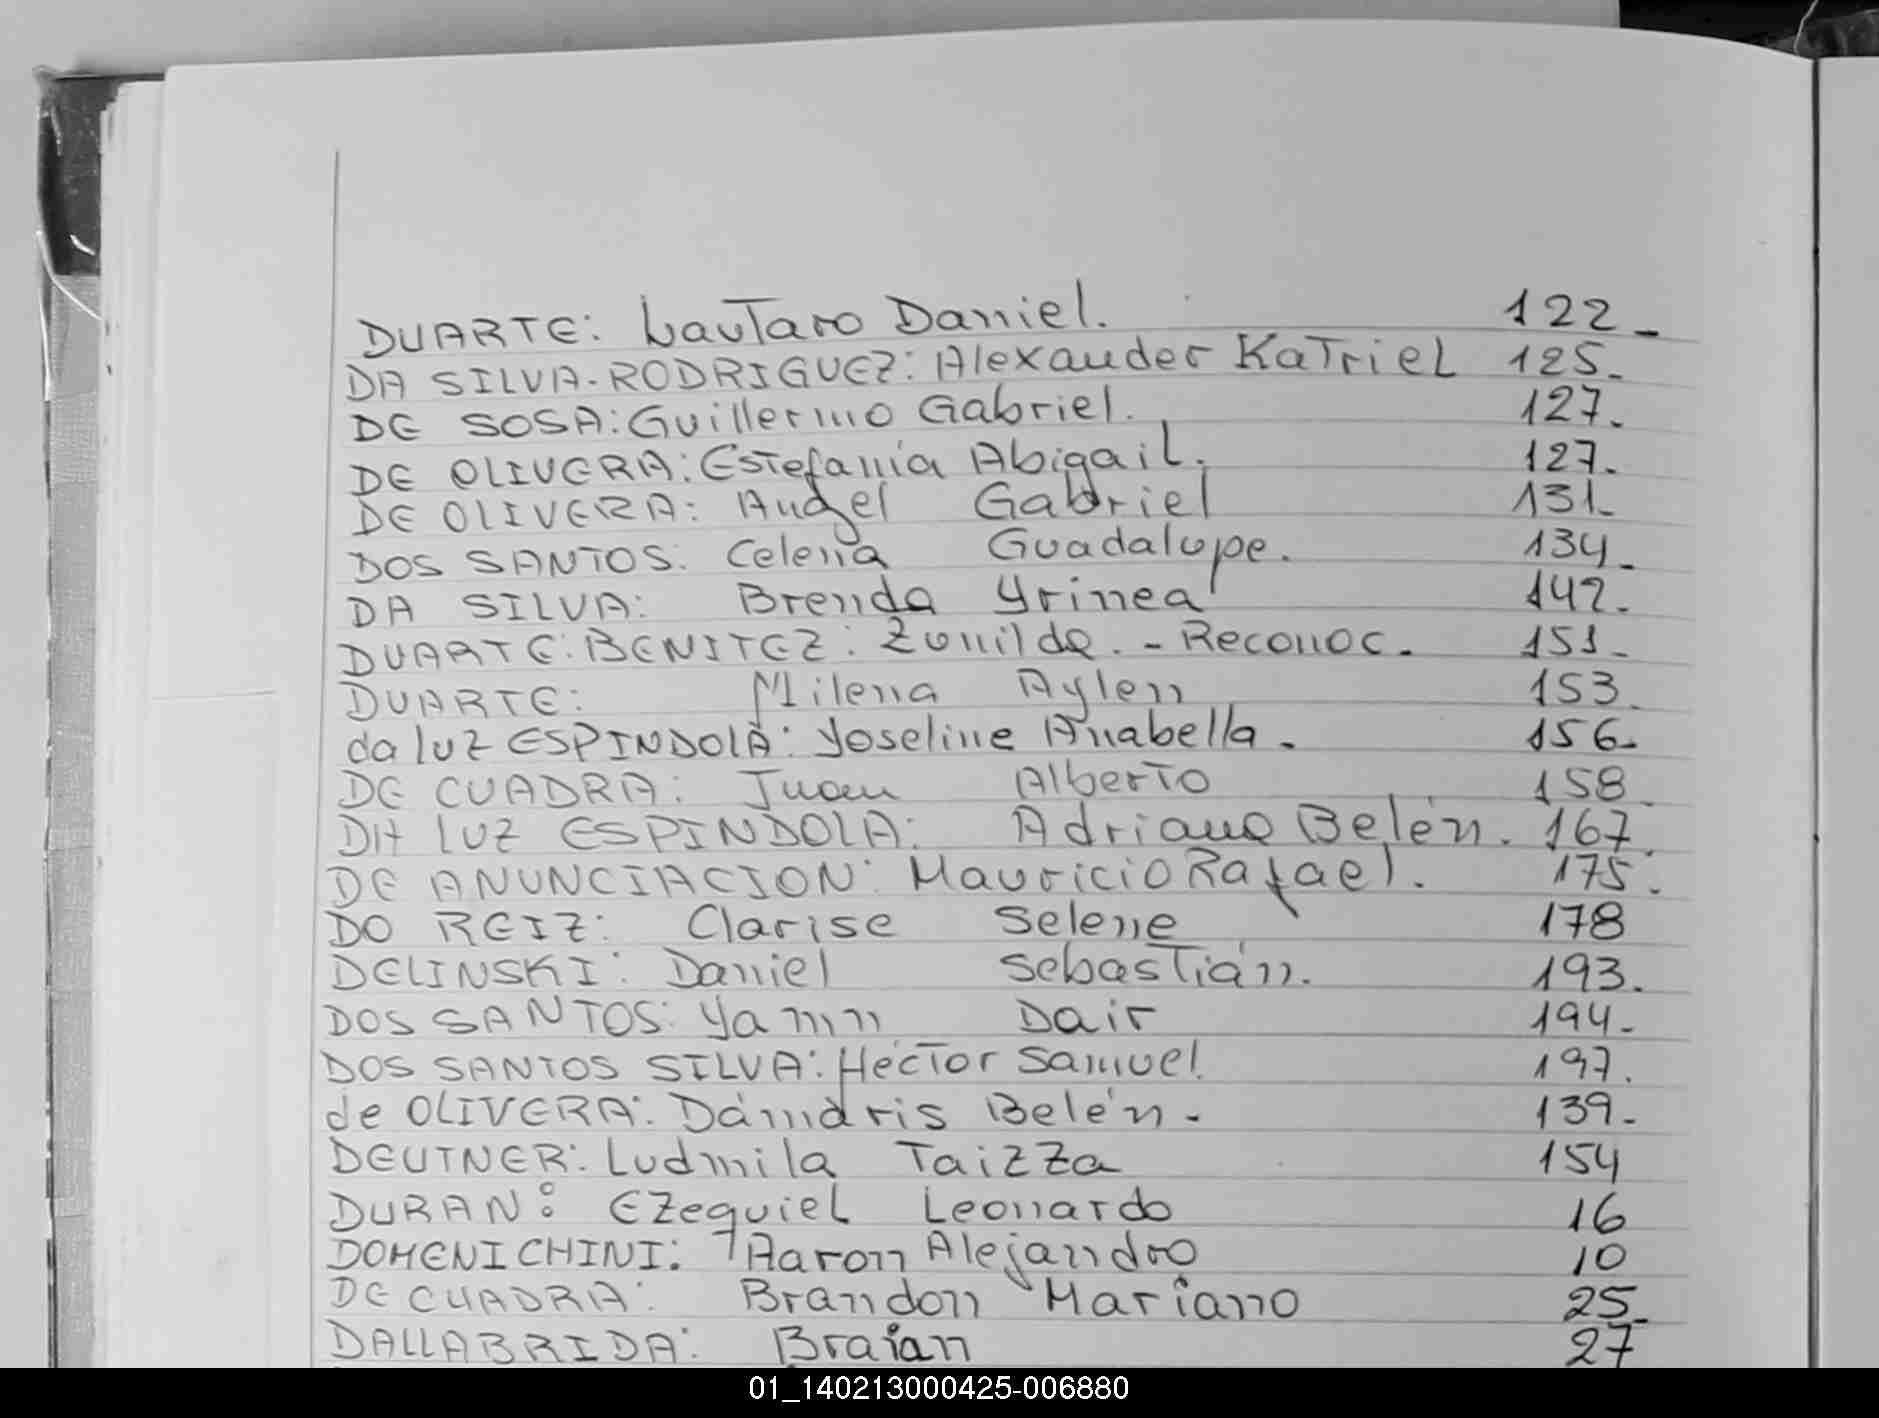 DUARTE: Lautaro Daniel. 122_
DA SILVA-RODRIGUEZ: Alexander Katriel 125_
DE SOSA: Guillermo Gabriel. 127_
DE OLIVERA: Estefanía Abigail. 127.
DE OLIVERA: Angel Gabriel 131_
DOS SANTOS: Celena Guadalupe. 134_
DA SILVA: Brenda Yrinea 142.
DUARTE: BENITEZ: Zunilda. - Reconoc. 151_
DUARTE: Milena Aylen 153_
da luz ESPINDOLA: Yoseline Anabella. 156.
DE CUADRA: Juan Alberto 158_
DA LUZ ESPINDOLA: Adriana Belén. 167.
DE ANUNCIACION: Mauricio Rafael. 175.
DO REIZ: Clarise Selene 178
DELINSKI: Daniel Sebastián. 193.
DOS SANTOS: Dair 194_
DOS SANTOS SILVA: Héctor Samuel. 197.
de OLIVERA: Dámaris Belén. 139_
DEUTNER: Ludmila Taizza 154
DURAN: Ezequiel Leonardo 16
DOMENICHINI: Aaron Alejandro 10
DE CUADRA: Brandon Mariano 25_
DALLABRIDA: Braian 27
01_140213000425-006880